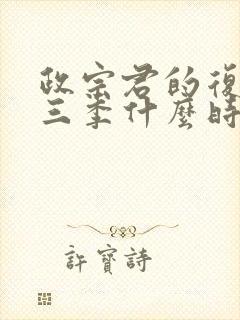 政宗君的復
三季什麼時
許寶詩